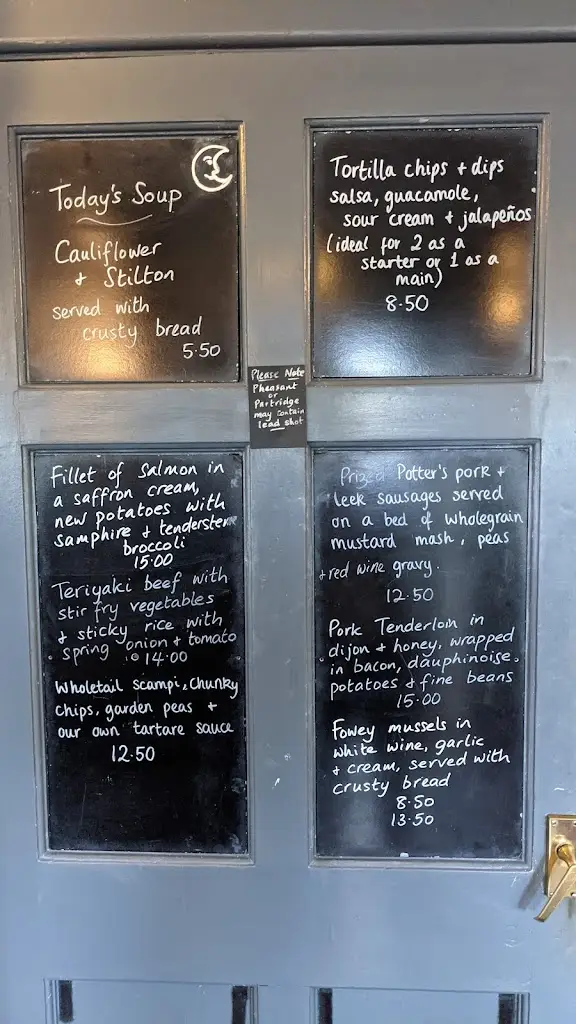 Today's Soup
Cauliflower
+ Stilton
served with
crusty bread
5.50
Tortilla chips + dips
salsa, guacamole,
sour cream + jalapeños
(ideal for 2 as a
starter or 1 as a
main)
8.50
Please Note
Pheasant
or
Partridge
may contain
lead shot
Fillet of Salmon in
a saffron cream,
new potatoes with
samphire + tenderstem
broccoli
15.00
Teriyaki beef with
stir fry vegetables
+ sticky rice with
spring onion + tomato
14.00
Wholetail scampi, chunky
chips, garden peas +
our own tartare sauce
12.50
Prized Potter's pork +
leek sausages served
on a bed of wholegrain
mustard mash, peas
+ red wine gravy.
12.50
Pork Tenderloin in
dijon + honey, wrapped
in bacon, dauphinoise
potatoes + fine beans
15.00
Fowey mussels in
white wine, garlic
+ cream, served with
crusty bread
8.50
13.50